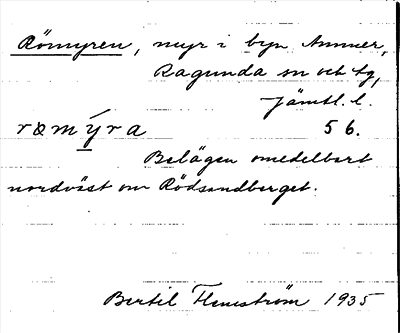 Römyren, myr i byn Ammer,
Ragunda sn och tg,
Jämtl. l.
ræmýra 56.
Belägen omedelbart
nordväst om Rödsandberget.
Bertil Flemström 1935